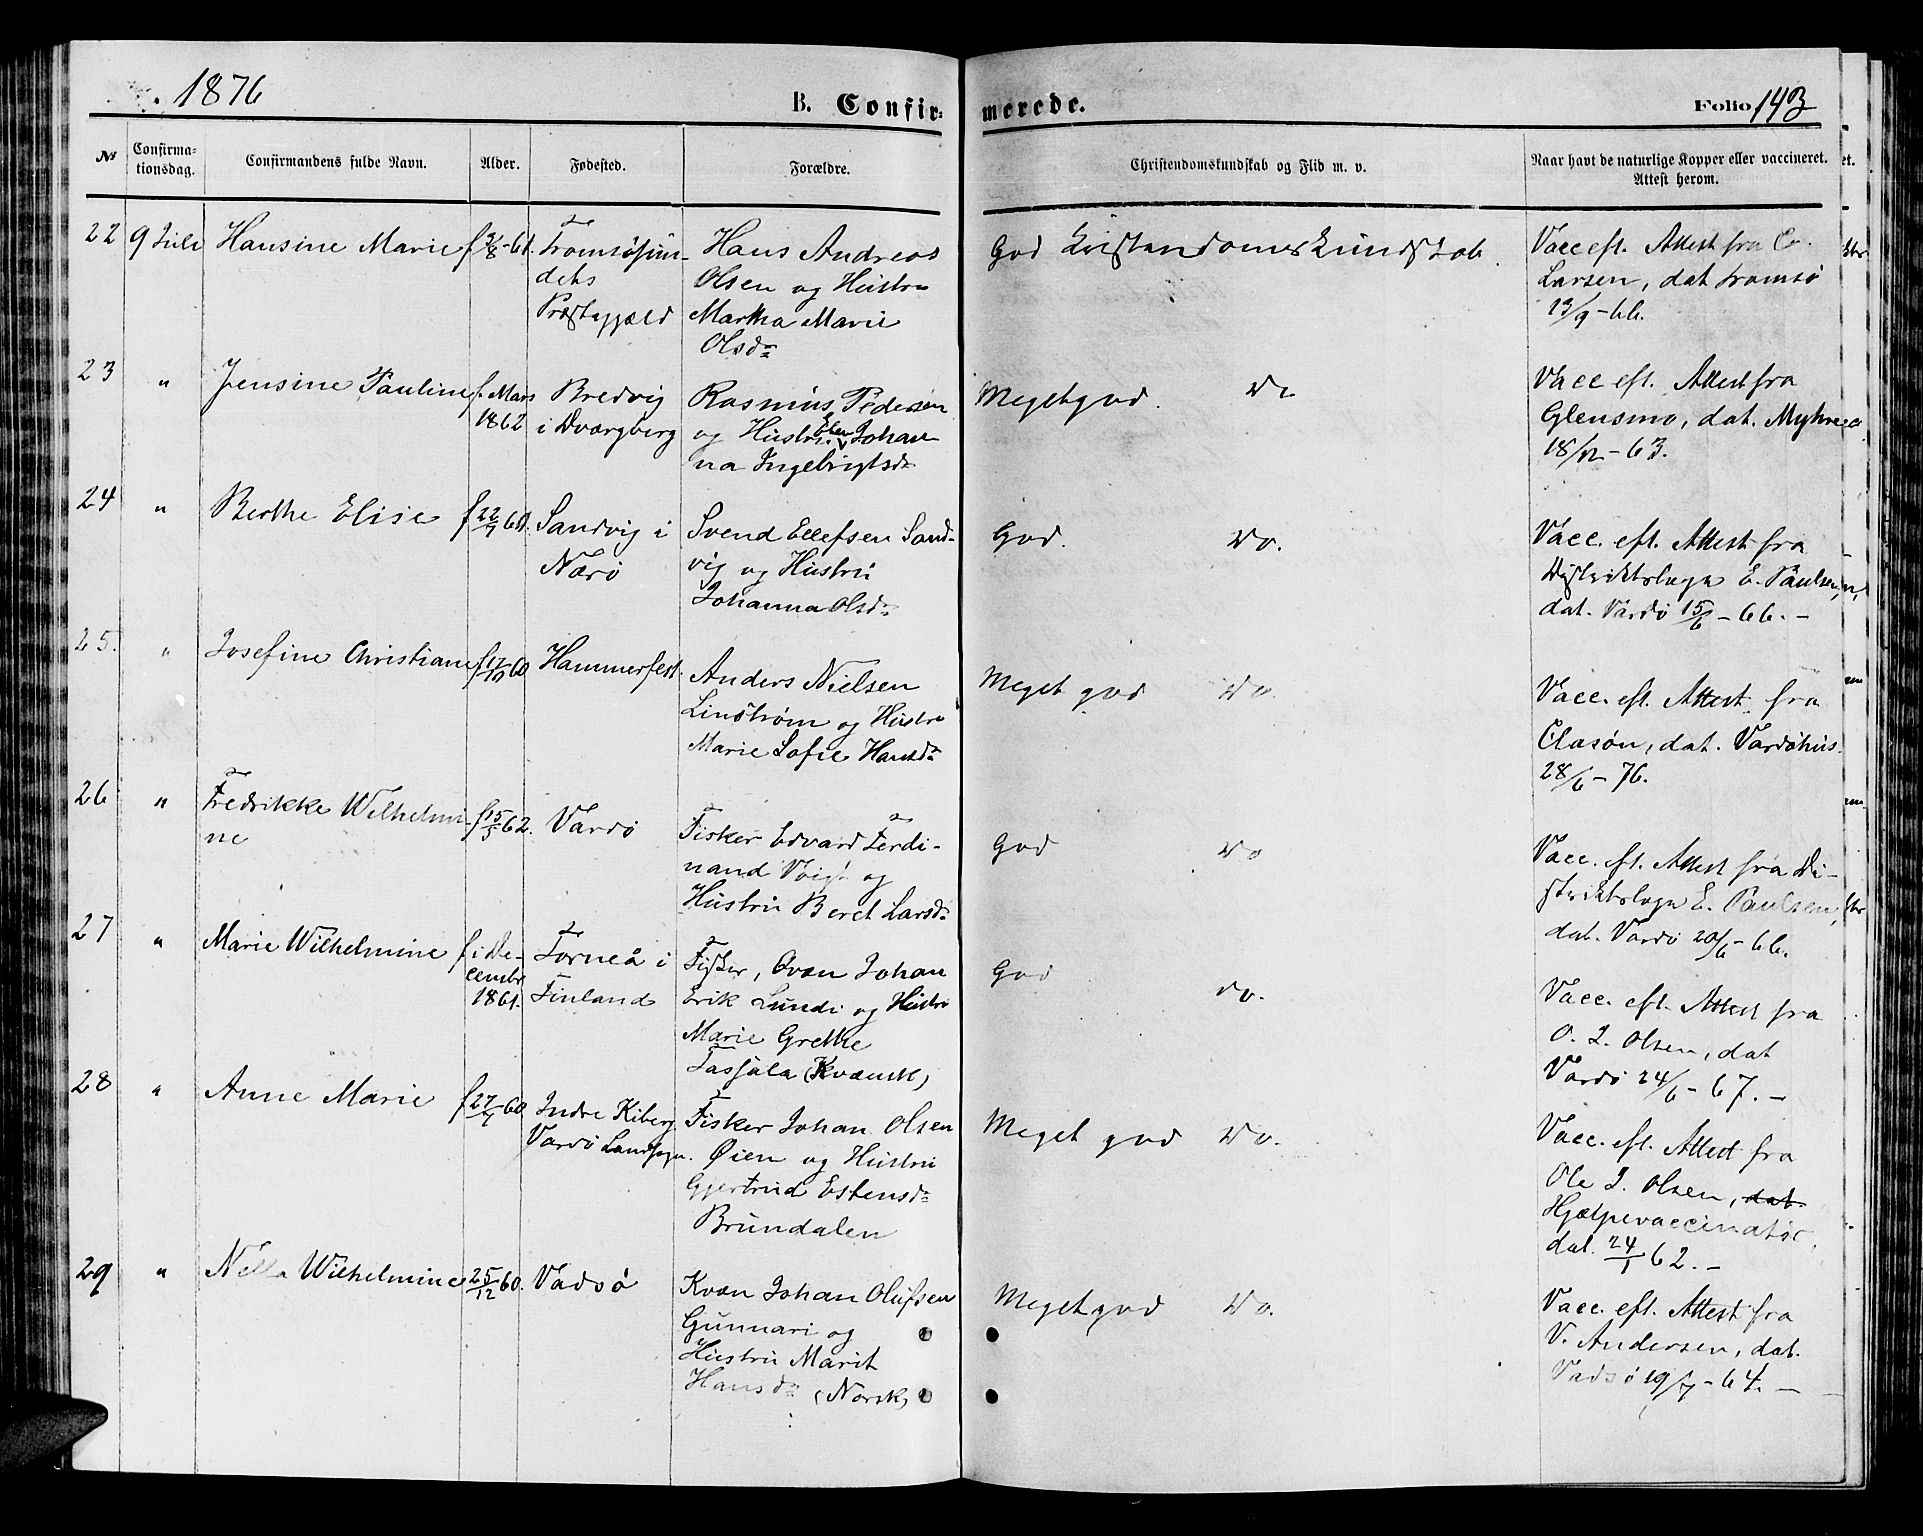 1876
B. Confirmerede.
Folio 143
№
Confirmationsdag.
Confirmandens fulde Navn.
Alder.
Fødested.
Forældre.
Christendomskundskab og Flid m. v.
Naar havt de naturlige Kopper eller vaccineret.
Attest herom.
22 9 Juli Hansine Marie f 3/8-61. Tromsøsun-
dets
Præstegjæld
Hans Andreas
Olsen og Hustru
Martha Marie
Olsdr
God Kristendomskundskab.
Vacc eft. Attest fra Co.
Larsen, dat Tromsø
13/9-66.
23 " Jensine Pauline f. Mars
1862
Bredvig
i Dvergberg
Rasmus Pedersen
og Hustru Elen Johan-
na Ingebrigtsdr
Meget god. Do
Vacc eft. Attest fra
Glensmo, dat. Myhre
18/12-63.
24 " Berthe Elise f 22/7 60. Sandvig i
Nærø
Svend Ellefsen Sand-
vig og Hustru
Johanna Olsdr
God. Do.
Vacc. eft. Attest fra
Distriktslæge E. Paulsen,
dat. Vardø 15/6-66.-
25. " Josefine Christiane f 17/10 60 Hammerfest.
Anders Nielsen
Linstrøm og Hustru
Marie Sofie Hansdr
Meget god Do.
Vacc. eft. Attest fra
Clasøn, dat. Vardøhus
28/6-76.
26 " Fredrikke Wilhelmi-
ne
f 15/5 62. Vardø
Fisker Edvard Ferdi-
nand Voigt og
Hustru Beret Larsdr
God Do
Vacc. eft. Attest fra Di-
striktslæge E. Paulsen,
dat. Vardø 20/6-66.
27 " Marie Wilhelmine f i De-
cembr
1861.
Torneå i
Finland
Fisker, Qvæn Johan
Erik Lundi og Hustru
Marie Grethe
Tasjala (Kvænsk)
God Do.
Vacc. eft. Attest fra
O. J. Olsen, dat
Vardø 24/6-67.-
28 " Anne Marie f 27/7 60 Indre Kiberg
Vardø Landsogn.
Fisker Johan Olsen
Øien og Hustru
Gjertrud Estensdr
Brundalen
Meget god Do.
Vacc. eft. Attest fra
Ole J. Olsen, dat.
Hjælpevaccinatør,
dat. 24/1 62.-
29 " Nella Wilhelmine 25/12 60. Vadsø
Kvæn Johan Olufsen
Gunnari og
Hustru Marit
Hansdr (Norsk)
Meget god Do.
Vacc. eft. Attest fra
V. Andersen, dat.
Vadsø 19/7-64.-